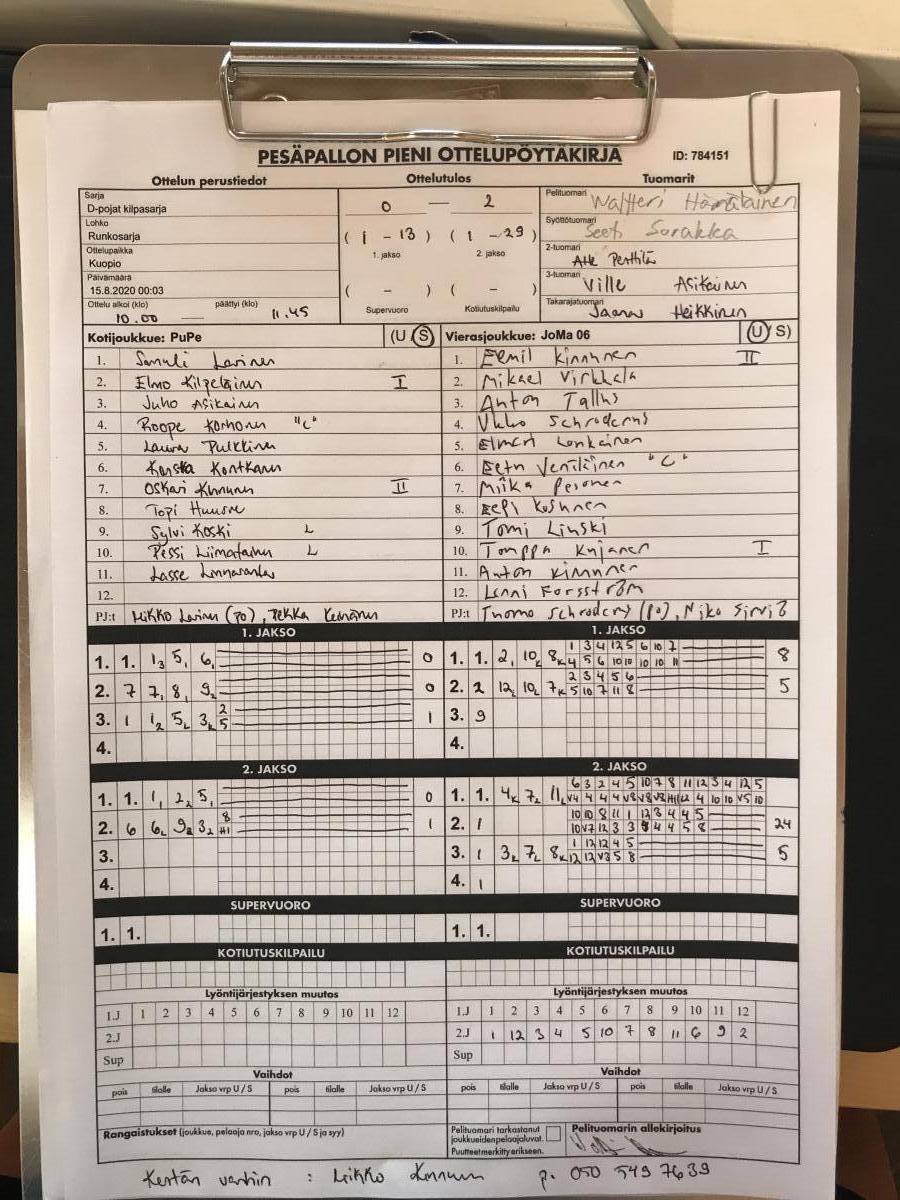 PESÄPALLON PIENI OTTELUPÖYTÄKIRJA ID: 784151
Ottelun perustiedot Ottelutulos Tuomarit
Sarja
D-pojat kilpasarja
Lohko
Runkosarja
Ottelupaikka
Kuopio
Päivämäärä
15.8.2020 00:03
Ottelu alkoi (klo) päättyi (klo)
10.00 11.45
0 — 2
(1 - 13) (1 - 29)
1. jakso 2. jakso
( - ) ( - )
Supervuoro Kotiutuskilpailu
Pelituomari Waltteri Hämäläinen
Syöttötuomari
Sarakka
2-tuomari
Atte Perttilä
3-tuomari
Ville Asikainen
Takarajatuomari
Heikkinen
Kotijoukkue: PuPe (U S)
1. Samuli Larinen
2. Elmo Kilpeläinen I
3. Juho Asikainen
4. Roope Korhonen "C"
5. Laura Pulkkinen
6. Kontkanen
7. Oskari Kinnunen II
8. Topi
9. Sylvi Koski L
10. Pessi Liimatainen L
11. Lasse
12.
PJ:t Mikko Larinen (PO), Pekka
Vierasjoukkue: JoMa 06 (U S)
1. Eemil Kinnunen II
2. Mikael Virkkala
3. Anton Tallus
4. Ukko Schroderus
5. Elmeri Lonkainen
6. Eetu Venäläinen "C"
7. Miika Pesonen
8. Eepi Kosunen
9. Tomi Linski
10. Tomppa Kujanen I
11. Anton Kinnunen
12. Lenni Forsström
PJ:t Tuomo Schroderus (PO), Niko Sirviö
1. JAKSO
1. 1. 1₃ 5, 6, 0
2. 7 7, 8, 9₂ 0
3. 1 1₂ 5L 3k 2 5 1
4.
1. JAKSO
1. 1. 2, 10k 8k 1 3 4 12 5 6 10 7 8
4 5 6 10 10 10 10 11
2. 2 12L 10L 7k 2 3 4 5 6 5
5 10 7 11 8
3. 9
4.
2. JAKSO
1. 1. 1, 2₂ 5, 0
2. 6 6L 9₂ 3₂ 8 H1 1
3.
4.
2. JAKSO
1. 1. 4k 7L 11L 6 3 2 4 5 10 7 8 11 12 3 4 12 5
V4 4 4 4 V8 V8 V8 H11 12 4 10 10 V5 10
2. 1 10 10 8 11 1 12 3 4 4 5 24
10 V7 12 3 3 3 4 4 5 8
3. 1 3L 7L 8k 1 12 12 4 5 5
12 12 V3 5 8
4. 1
SUPERVUORO
1. 1.
SUPERVUORO
1. 1.
KOTIUTUSKILPAILU
KOTIUTUSKILPAILU
Lyöntijärjestyksen muutos
1.J 1 2 3 4 5 6 7 8 9 10 11 12
2.J
Sup
Lyöntijärjestyksen muutos
1.J 1 2 3 4 5 6 7 8 9 10 11 12
2.J 1 12 3 4 5 10 7 8 11 6 9 2
Sup
Vaihdot
pois tilalle Jakso vrp U / S pois tilalle Jakso vrp U / S
Vaihdot
pois tilalle Jakso vrp U / S pois tilalle Jakso vrp U / S
Rangaistukset (joukkue, pelaaja nro, jakso vrp U / S ja syy)
Pelituomari tarkastanut
joukkueiden pelaajaluvat.
Puutteet merkitty erikseen.
Pelituomarin allekirjoitus
Kentän vanhin : Mikko Kinnunen p. 050 549 7639